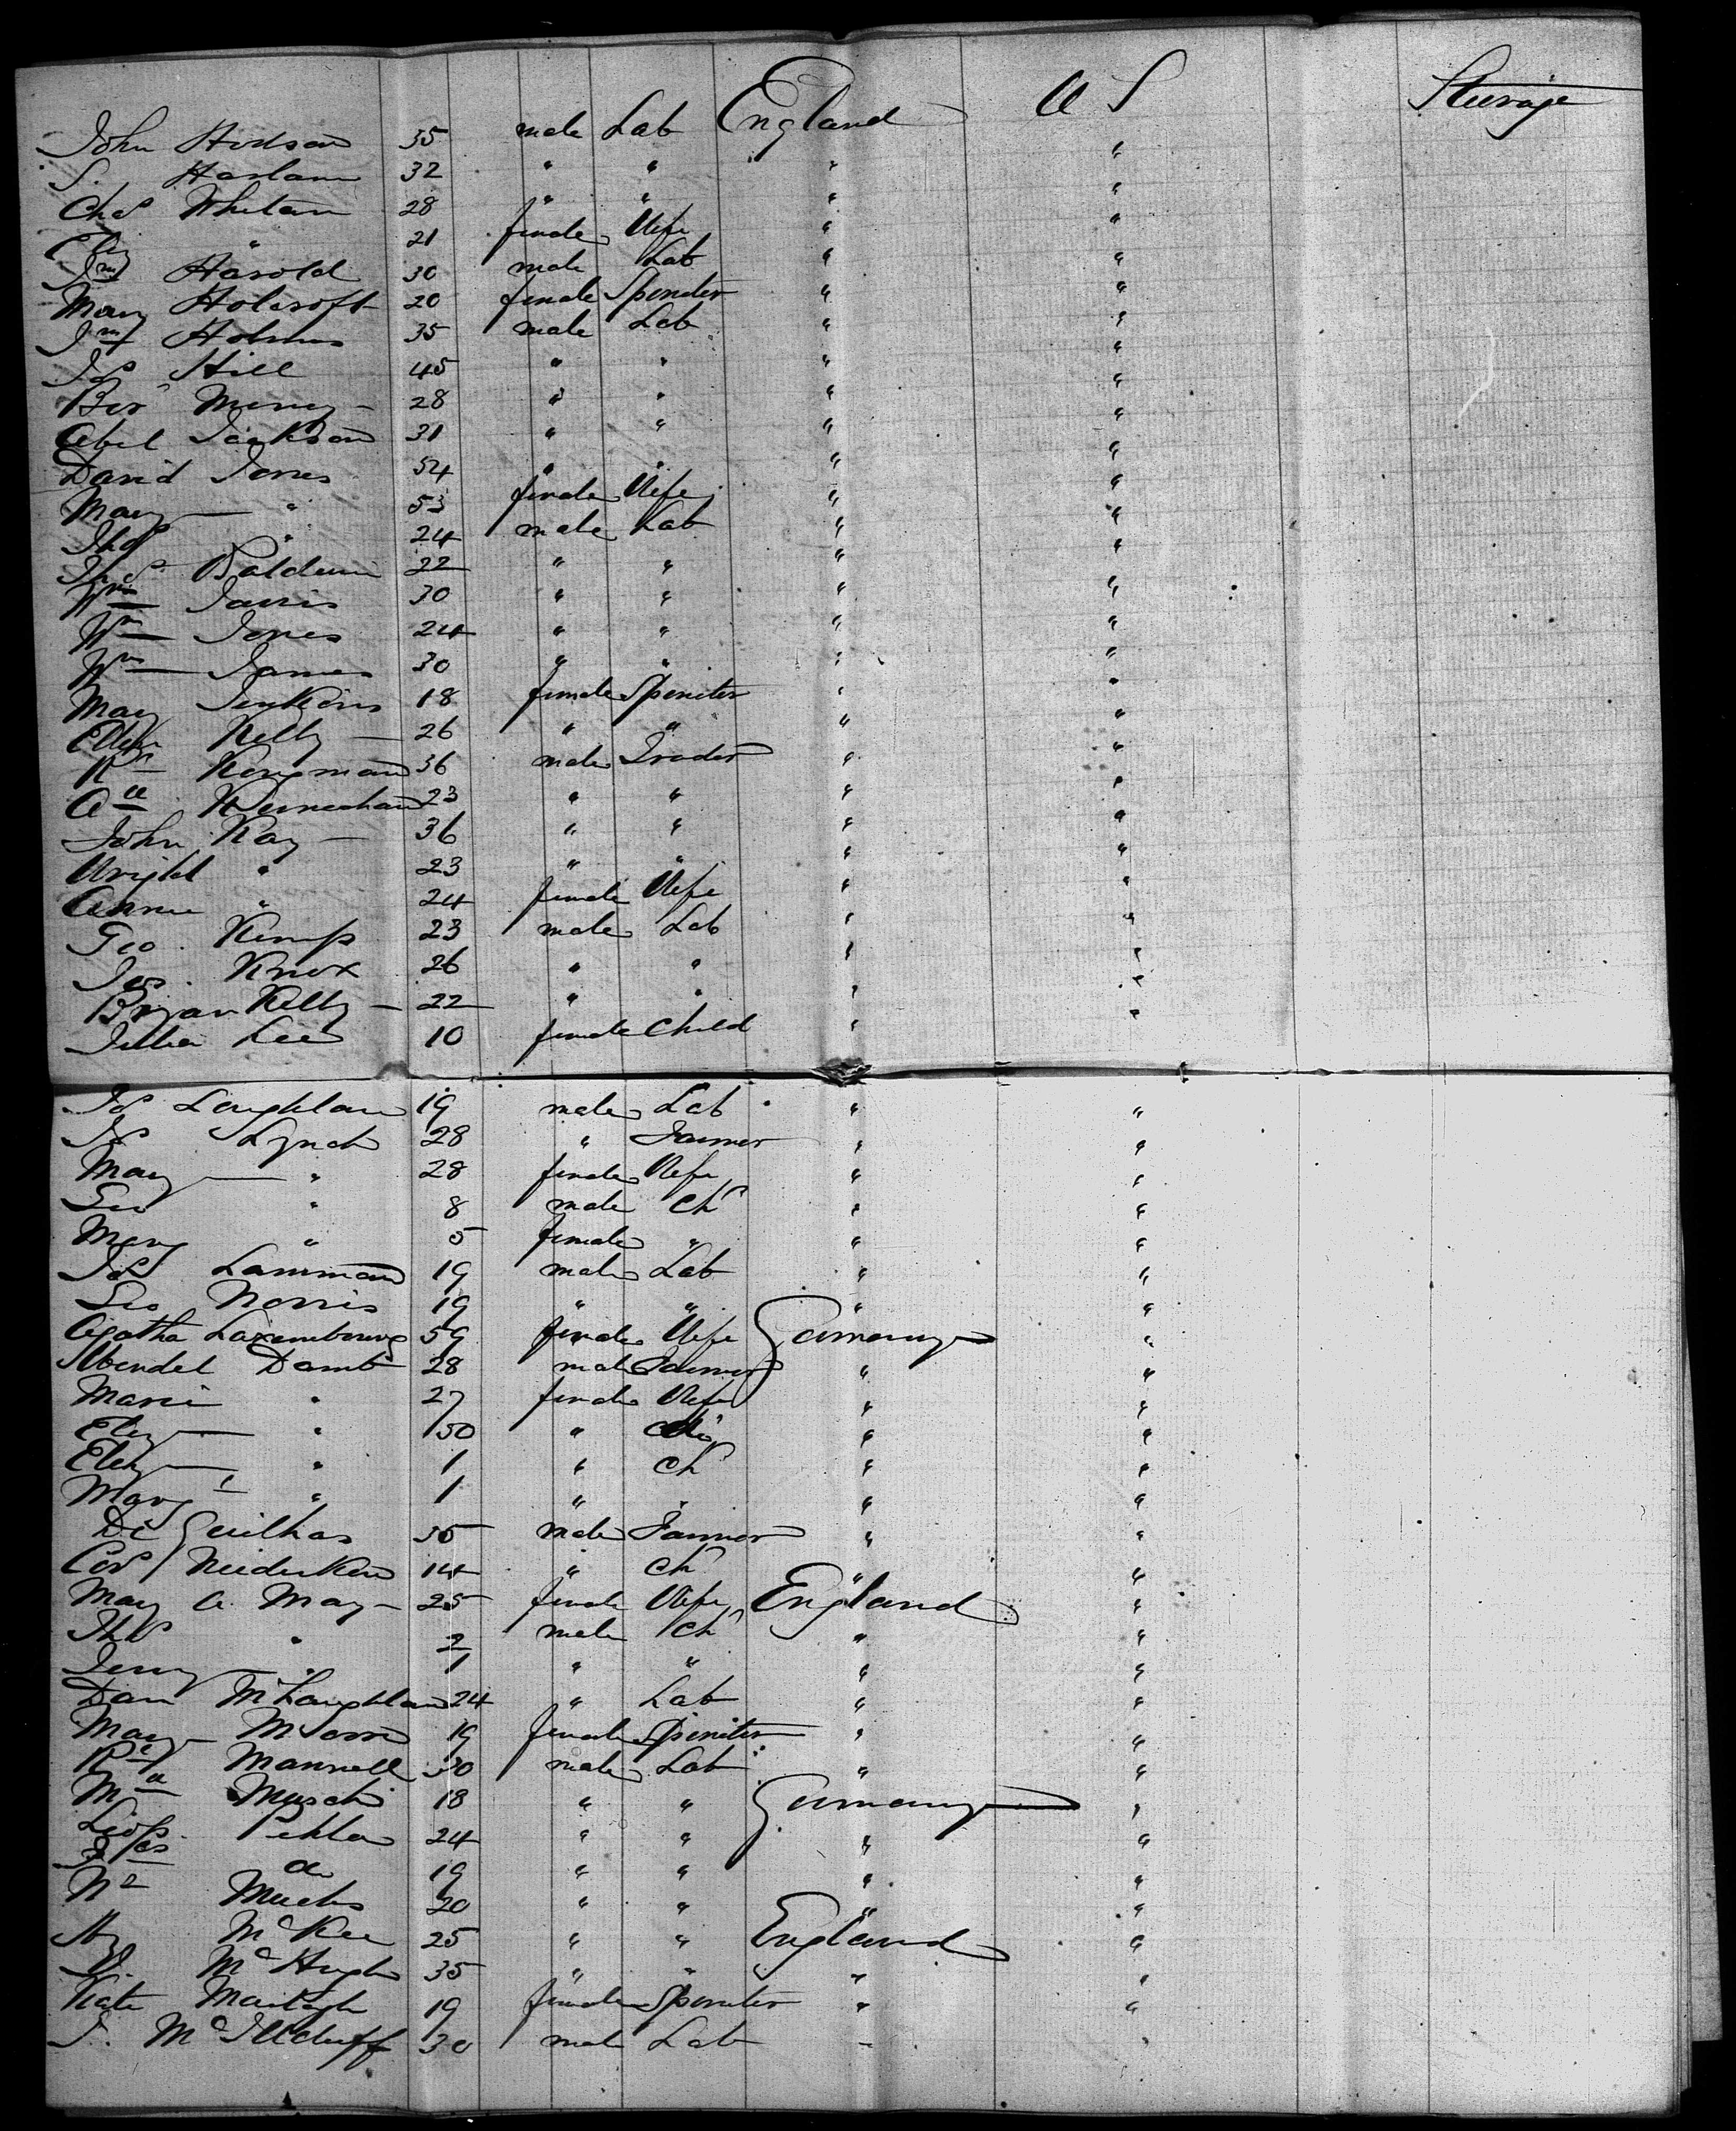 John Hodson 35 male Lab England U S Steerage
S. Harlam 32 " " " "
Chas Whitam 28 " " " "
Eliz " 21 female Wife " "
Jno Harold 30 male Lab " "
Mary Holcroft 20 female Spinster " "
Jno Holmes 35 male Lab " "
Jas Hill 45 " " " "
28 " " " "
Abel Jackson 31 " " " "
David Jones 54 " " " "
Mary " 53 female Wife " "
Thos " 24 male Lab " "
Thos Baldwin 22 " " " "
Wm Jarvis 30 " " " "
Wm Jones 24 " " " "
Wm James 30 " " " "
Mary Jenkins 18 female Spinster " "
Ellen Kelly 26 " " " "
Rd Kingman 36 male Trader " "
23 " " " "
John Kay 36 " " " "
Wright " 23 " " " "
Annie " 24 female Wife " "
Geo. Kemp 23 male Lab " "
Jas. Knox 26 " " " "
Bryan Kelly 22 " " " "
Julia Lee 10 female Child " "
Jas Loughlan 19 male Lab " "
Jas Lynch 28 " Farmer " "
Mary " 28 female Wife " "
Geo " 8 male Ch " "
Mary " 5 female " " "
Jas Lamman 19 male Lab " "
Geo Norris 19 " " " "
Agatha Luxembourg 59 female Wife Germany "
Wendel Damb 28 male Farmer " "
Marie " 27 female Wife " "
Eliz " 50 " " "
Eliz " 1 " Ch " "
Margt " 1 " " " "
De Guilhas 35 male Farmer " "
14 " Ch " "
Mary A. May 25 female Wife England "
Thos " 2 male Ch " "
Jenny " 1 " " " "
Dan McLaughlan 24 " Lab " "
Mary 19 female Spinster " "
Mannell 30 male Lab " "
18 " " Germany "
24 " " " "
do 19 " " " "
20 " " " "
McKee 25 " " England "
McHugh 35 " " " "
Kate Murtagh 19 female Spinster " "
J. McIlduff 30 male Lab "